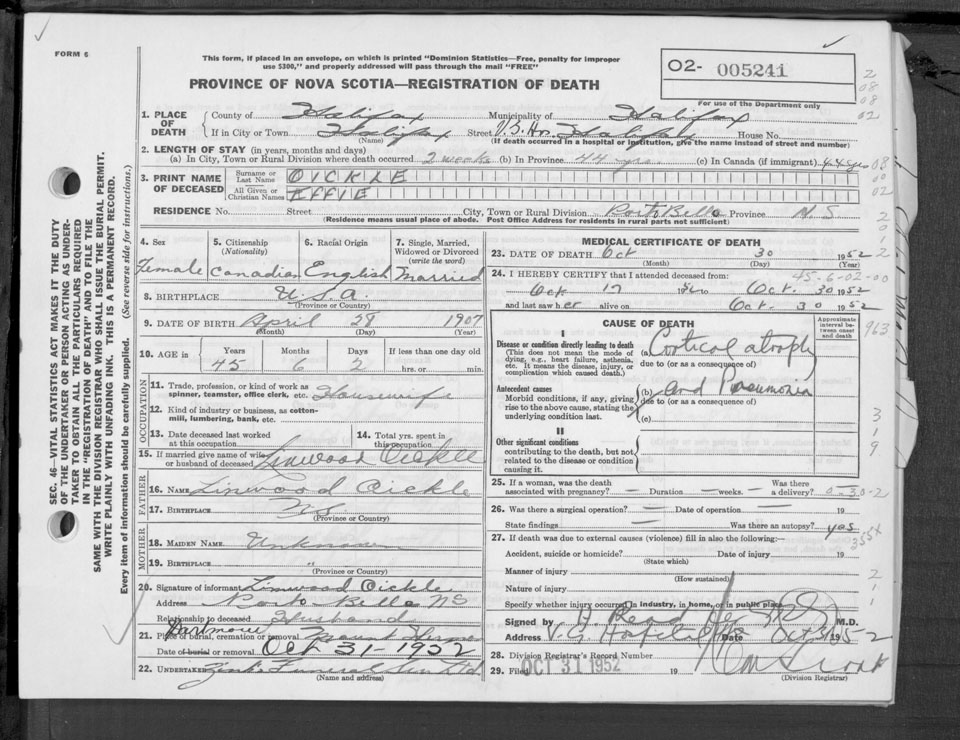 FORM 6
This form, if placed in an envelope, on which is printed "Dominion Statistics—Free, penalty for improper
use $300," and properly addressed will pass through the mail "FREE"
PROVINCE OF NOVA SCOTIA—REGISTRATION OF DEATH
02- 005241
For use of the Department only
1. PLACE OF DEATH
County of Halifax Municipality of Halifax
If in City or Town Halifax Street V.G. Hos. Halifax House No.
(Name) (If death occurred in a hospital or institution, give the name instead of street and number)
2. LENGTH OF STAY (in years, months and days)
(a) In City, Town or Rural Division where death occurred 2 weeks (b) In Province 44 yrs. (c) In Canada (if immigrant) 44 yrs
3. PRINT NAME OF DECEASED
Surname or Last Name OICKLE
All Given or Christian Names EFFIE
RESIDENCE No. Street City, Town or Rural Division Porto Bello Province N.S
(Residence means usual place of abode. Post Office Address for residents in rural parts not sufficient)
4. Sex
Female
5. Citizenship (Nationality)
Canadian
6. Racial Origin
English
7. Single, Married, Widowed or Divorced (write the word)
Married
8. BIRTHPLACE U.S.A.
(Province or Country)
9. DATE OF BIRTH April 28 1907
(Month) (Day) (Year)
10. AGE in Years Months Days If less than one day old
45 6 2 hrs. or min.
OCCUPATION
11. Trade, profession, or kind of work as
spinner, teamster, office clerk, etc. Housewife
12. Kind of industry or business, as cotton-
mill, lumbering, bank, etc.
13. Date deceased last worked at this occupation
14. Total yrs. spent in this occupation
15. If married give name of wife
or husband of deceased Linwood Oickle
FATHER
16. NAME Linwood Oickle
17. BIRTHPLACE NS
(Province or Country)
MOTHER
18. MAIDEN NAME Unknown
19. BIRTHPLACE "
(Province or Country)
20. Signature of informant Linwood Oickle
Address Porto Bello NS
Relationship to deceased Husband
Dartmouth
21. Place of burial, cremation or removal Mount
Date of burial or removal Oct 31-1952
22. UNDERTAKER Zink's Funeral
(Name and address)
MEDICAL CERTIFICATE OF DEATH
23. DATE OF DEATH Oct 30 1952
(Month) (Day)
45-6-02-00
24. I HEREBY CERTIFY that I attended deceased from:
Oct 17 1952 to Oct. 30 1952
and last saw her alive on Oct. 30 1952
CAUSE OF DEATH
Approximate interval between onset and death
I
Disease or condition directly leading to death
(This does not mean the mode of
dying, e.g., heart failure, asthenia,
etc. It means the disease, injury, or
complication which caused death.)
(a) Cortical atrophy
due to (or as a consequence of)
Antecedent causes
Morbid conditions, if any, giving
rise to the above cause, stating the
underlying condition last.
(b) and Pneumonia
due to (or as a consequence of)
(c)
II
Other significant conditions
contributing to the death, but not
related to the disease or condition
causing it.
25. If a woman, was the death Was there
associated with pregnancy? — Duration —weeks. — a delivery? 0-30-2
26. Was there a surgical operation? — Date of operation — 19
State findings — Was there an autopsy? yes
27. If death was due to external causes (violence) fill in also the following:—
Accident, suicide or homicide? Date of injury 19
(State which)
Manner of injury
(How sustained)
Nature of injury
Specify whether injury occurred in industry, in home, or in public place
Signed by M.D.
Address V.G. Hospital Date Oct 31 1952
28. Division Registrar's Record Number
29. Filed OCT 31 1952 19
(Division Registrar)
SEC. 46—VITAL STATISTICS ACT MAKES IT THE DUTY
OF THE UNDERTAKER OR PERSON ACTING AS UNDER-
TAKER TO OBTAIN ALL THE PARTICULARS REQUIRED
IN THE "REGISTRATION OF DEATH" AND TO FILE THE
SAME WITH THE DIVISION REGISTRAR WHO SHALL ISSUE THE BURIAL PERMIT.
WRITE PLAINLY WITH UNFADING INK. THIS IS A PERMANENT RECORD.
Every item of information should be carefully supplied. (See reverse side for instructions.)